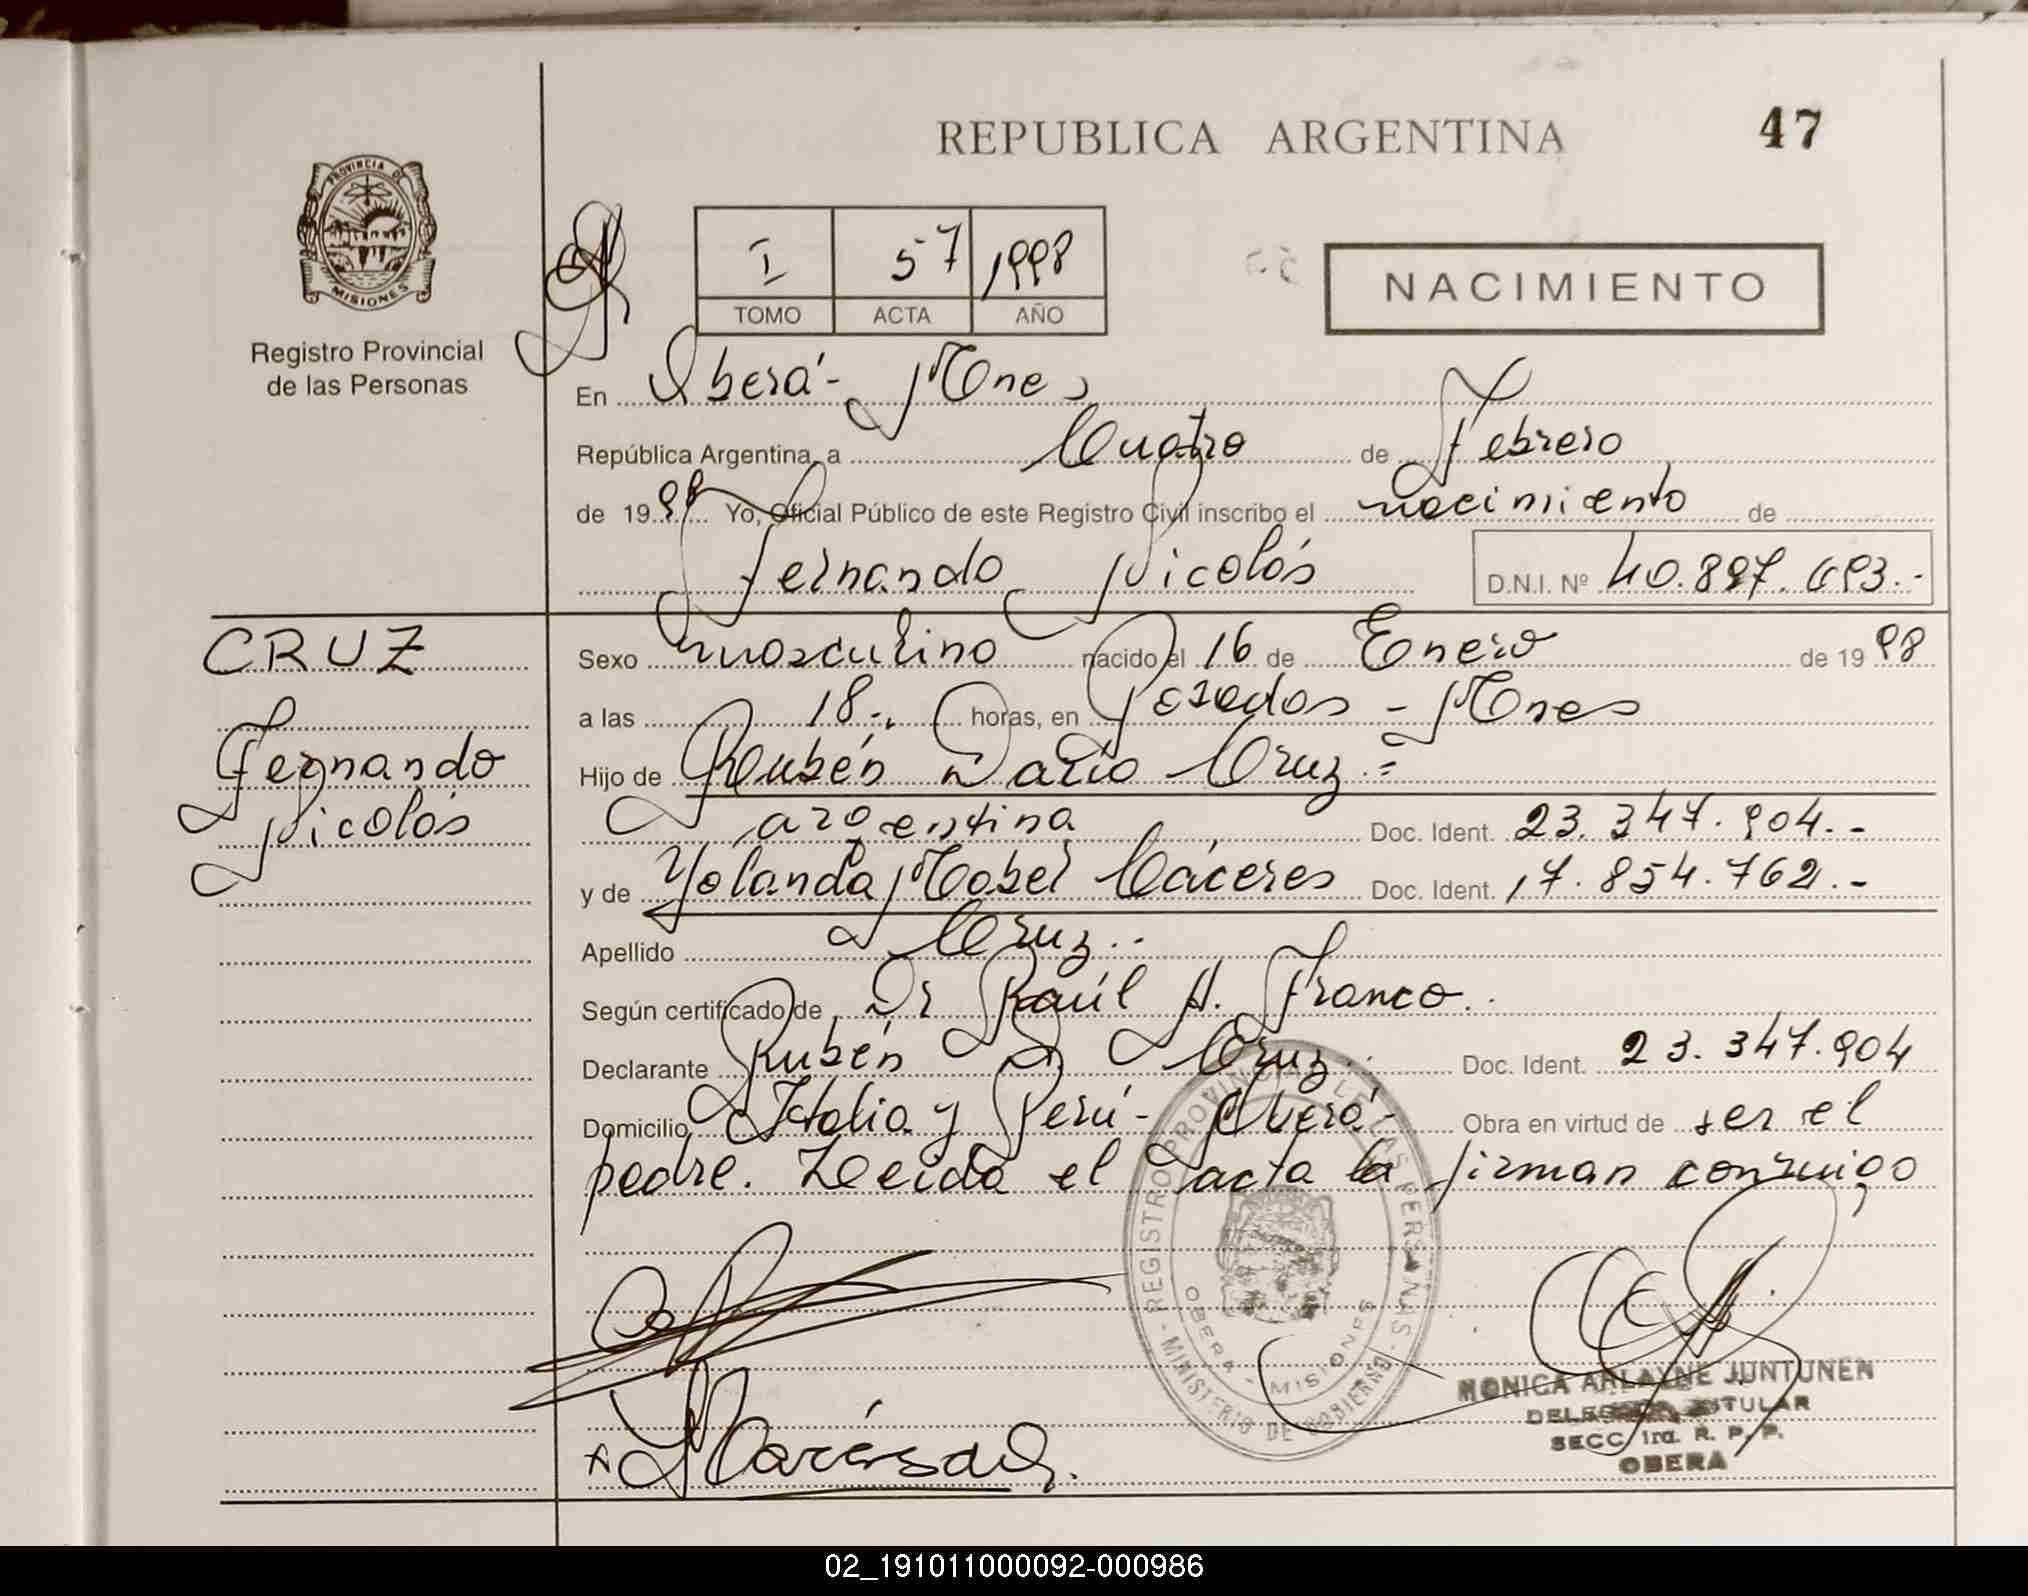 REPUBLICA ARGENTINA
47
PROVINCIA DE
MISIONES
Registro Provincial
de las Personas
I 57 1998
TOMO ACTA AÑO
NACIMIENTO
En Oberá - Mnes
República Argentina, a Cuatro de Febrero
de 1998 Yo, Oficial Público de este Registro Civil inscribo el nacimiento de
Fernando Nicolás D.N.I. Nº 40.897.693.-
CRUZ
Fernando
Nicolás
Sexo masculino nacido el 16 de Enero de 1998
a las 18.. horas, en Posadas - Mnes
Hijo de Rubén Darío Cruz.=
argentina Doc. Ident. 23.347.904.-
y de Yolanda Mabel Cáceres Doc. Ident. 17.854.762.-
Apellido Cruz..
Según certificado de Dr Raúl A. Franco..
Declarante Rubén D. Cruz.. Doc. Ident. 23.347.904
Domicilio Italia y Perú - Oberá - Obra en virtud de ser el
padre. Leída el acta la firman conmigo
REGISTRO PROVINCIAL DE LAS PERSONAS
MINISTERIO DE GOBIERNO
OBERA - MISIONES
MONICA ARLAYNE JUNTUNEN
TITULAR
SECC. 1ra. R. P. P.
OBERA
02_191011000092-000986